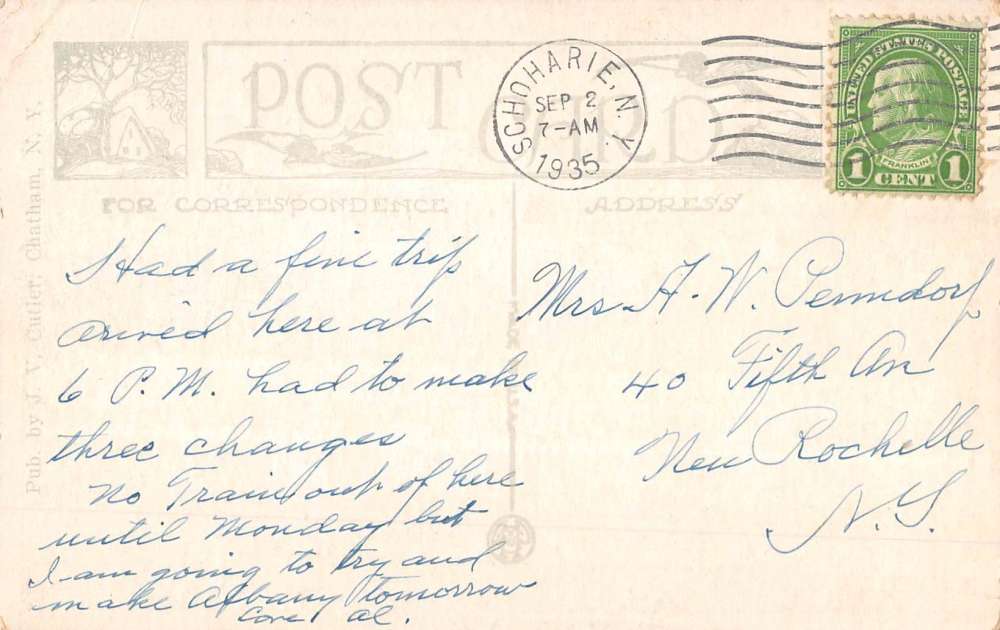 POST CARD
FOR CORRESPONDENCE
ADDRESS
Pub. by J. V. Cutler; Chatham, N. Y.
SCHOHARIE, N. Y.
SEP 2
7-AM
1935
UNITED STATES POSTAGE
FRANKLIN
1 CENT 1
Had a fine trip
arived here at
6 P.M. had to make
three changes
No Train out of here
until Monday but
I am going to try and
make Albany tomorrow
Love Al.
Mrs. A. W. Penndorf
40 Fifth Av
New Rochelle
N.Y.